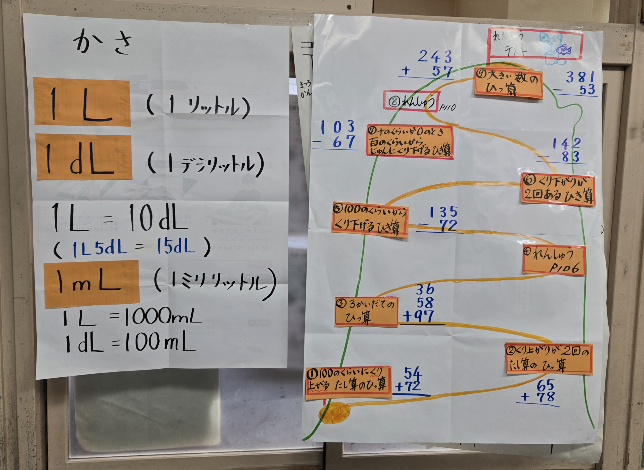 かさ
1L (1リットル)
1dL (1デシリットル)
1L = 10dL
(1L5dL = 15dL)
1mL (1ミリリットル)
1L = 1000mL
1dL = 100mL
れんしゅう
デー
243
+ 57
大きい数の
ひっ算
381
- 53
れんしゅう P110
103
- 67
十のくらいが0のとき
百のくらいから
じゅんにくり下げるひき算
142
- 83
くり下がりが
2回あるひき算
⑤100のくらいから
くり下げるひっ算
135
- 72
④れんしゅう
P106
③3かいだての
ひっ算
36
58
+97
②くり上がりが2回の
たし算のひっ算
65
+ 78
①100のくらいにくり
上がるたし算のひっ算
54
+72